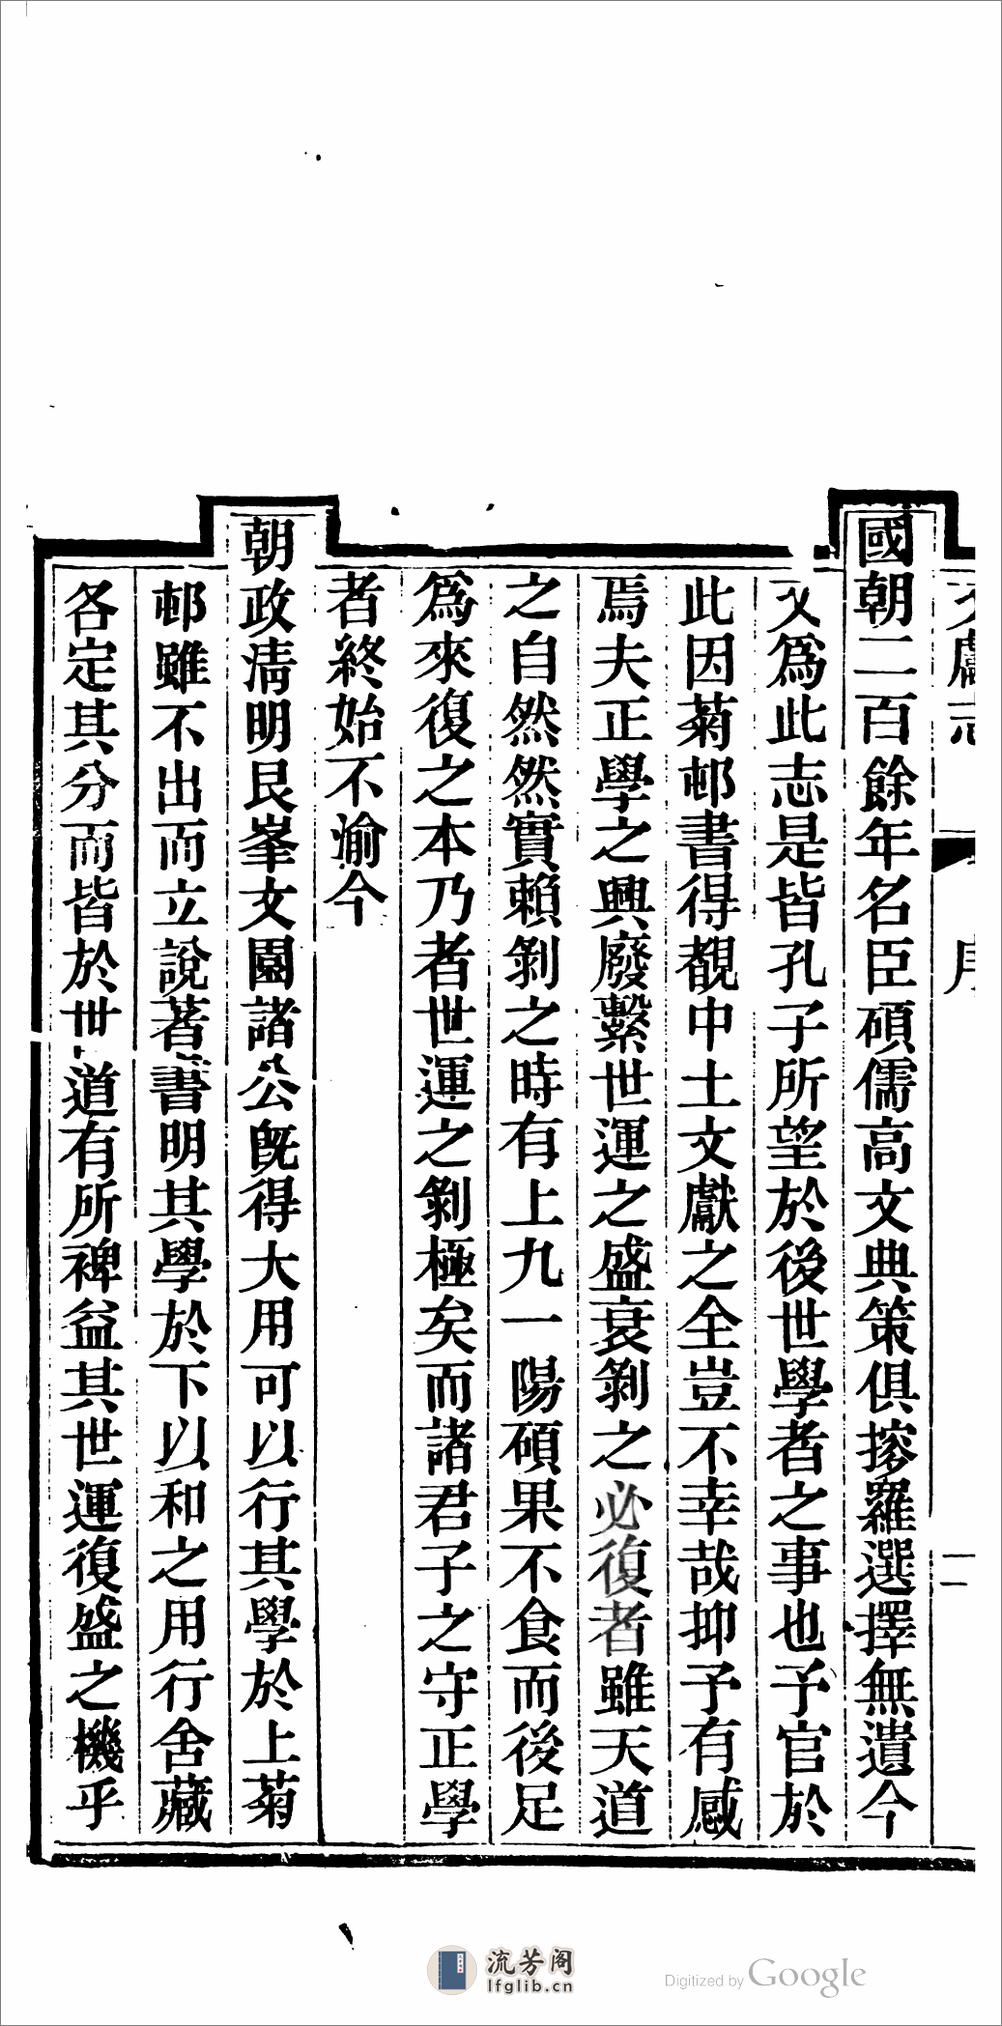 文獻志
序
二
國朝二百餘年名臣碩儒高文典策俱摉羅選擇無遺今
又爲此志是皆孔子所望於後世學者之事也予官於
此因菊邨書得覩中土文獻之全豈不幸哉抑予有感
焉夫正學之興廢繫世運之盛衰剝之必復者雖天道
之自然然實賴剝之時有上九一陽碩果不食而後足
爲來復之本乃者世運之剝極矣而諸君子之守正學
者終始不渝今
朝政淸明艮峯文園諸公旣得大用可以行其學於上菊
邨雖不出而立說著書明其學於下以和之用行舍藏
各定其分而皆於世道有所裨益其世運復盛之機乎
流芳阁
lfglib.cn
Digitized by Google